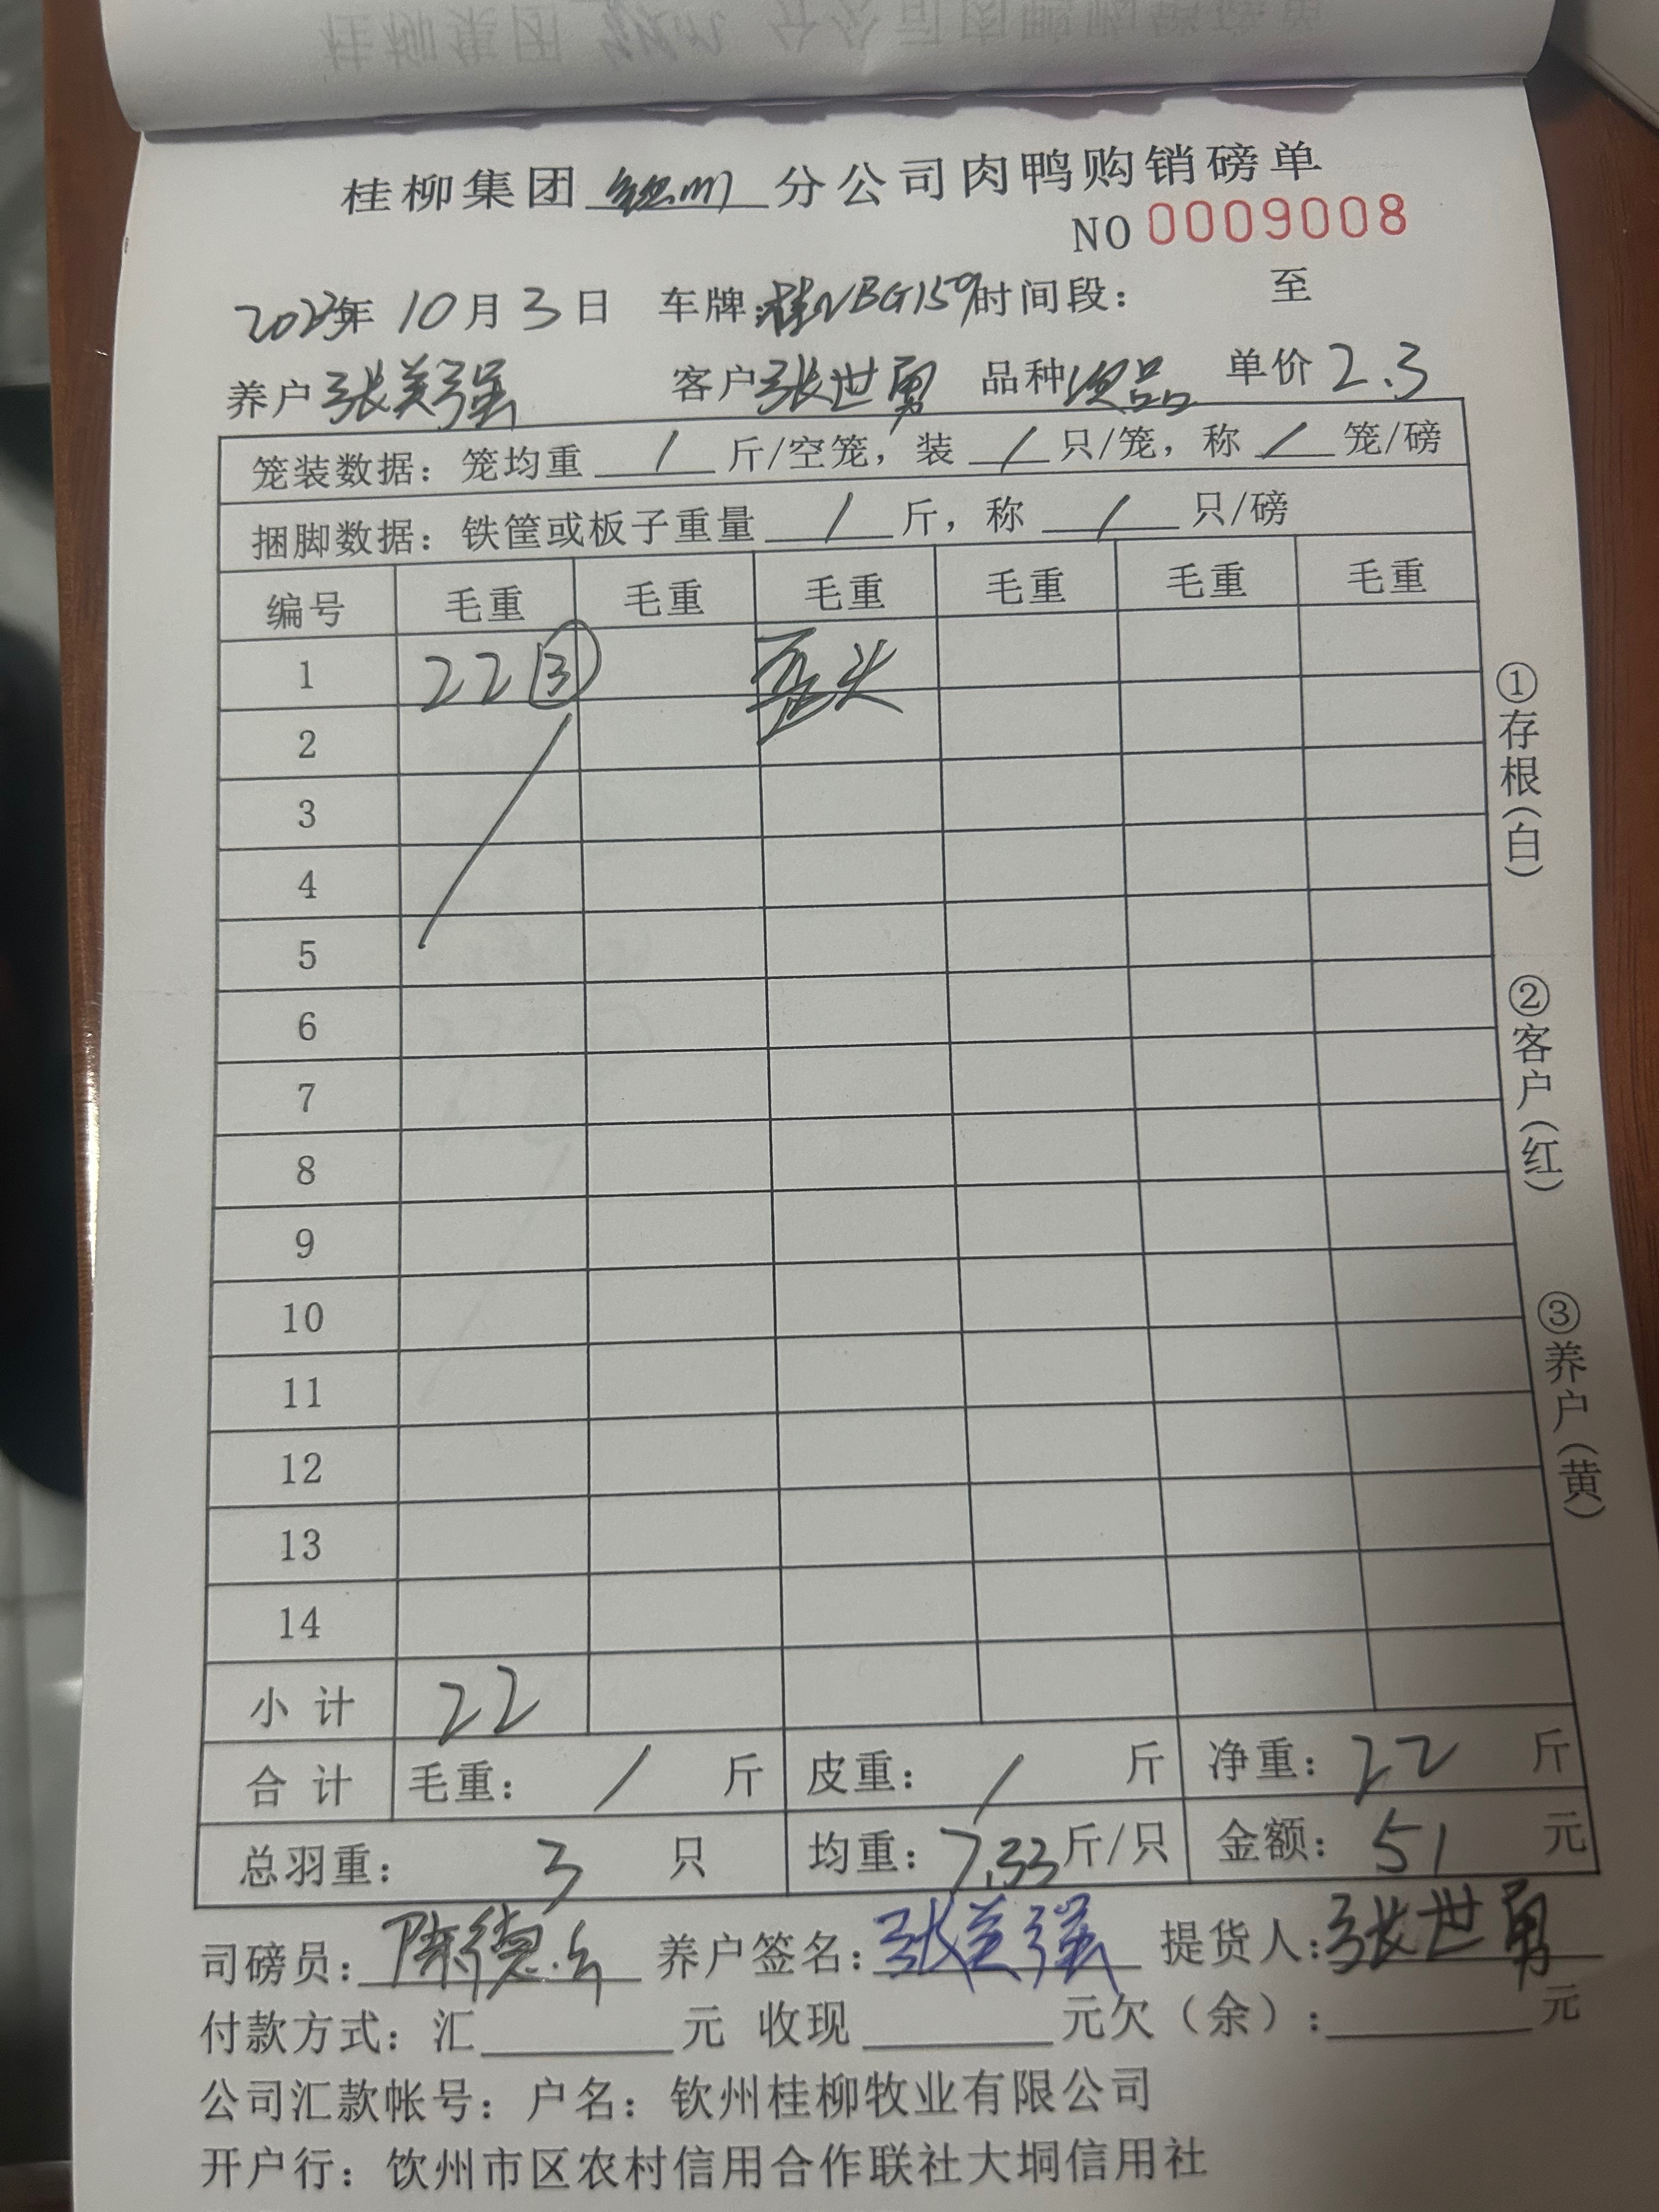 桂柳集团 钦州 分公司肉鸭购销磅单
NO 0009008
2023年 10月 3日 车牌:桂NBG159 时间段: 至
养户 张美强 客户 张世勇 品种 次品 单价 2.3
笼装数据: 笼均重 / 斤/空笼, 装 / 只/笼, 称 / 笼/磅
捆脚数据: 铁筐或板子重量 / 斤, 称 / 只/磅
编号 毛重 毛重 毛重 毛重 毛重 毛重
1 22 3 歪头
2
3
4
5
6
7
8
9
10
11
12
13
14
小计 22
合计 毛重: / 斤 皮重: / 斤 净重: 22 斤
总羽重: 3 只 均重: 7.33 斤/只 金额: 51 元
司磅员: 陈德 养户签名: 张美强 提货人: 张世勇
付款方式: 汇 元 收现 元欠(余): 元
公司汇款帐号: 户名: 钦州桂柳牧业有限公司
开户行: 钦州市区农村信用合作联社大垌信用社
①存根(白)
②客户(红)
③养户(黄)